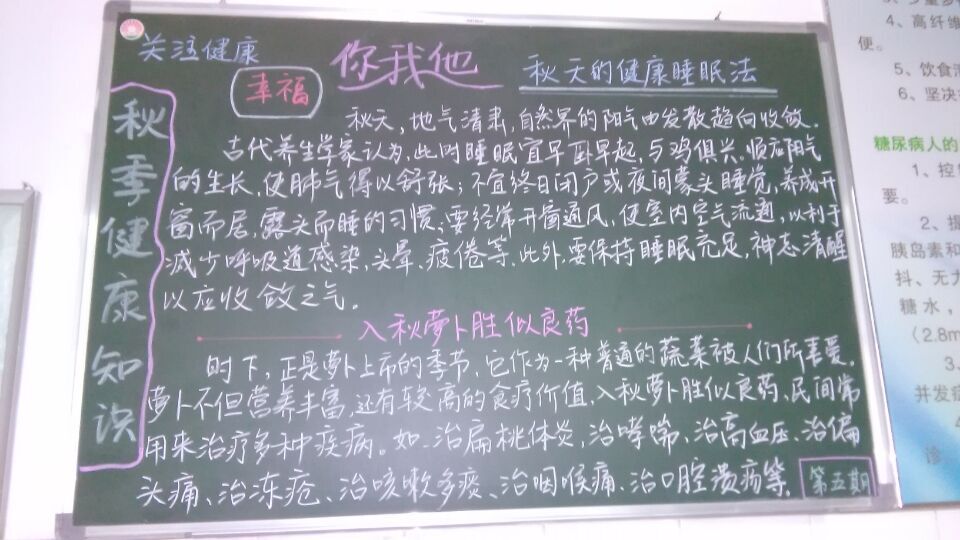 关注健康
你我他
幸福
秋天的健康睡眠法
秋季健康知识
秋天,地气清肃,自然界的阳气由发散趋向收敛.
古代养生学家认为,此时睡眠宜早卧早起,与鸡俱兴.顺应阳气
的生长,使肺气得以舒张;不宜终日闭户或夜间蒙头睡觉,养成开
窗而居、露头而睡的习惯;要经常开窗通风,使室内空气流通,以利于
减少呼吸道感染、头晕、疲倦等.此外,要保持睡眠充足,神志清醒
以应收敛之气。
入秋萝卜胜似良药
时下,正是萝卜上市的季节,它作为一种普通的蔬菜被人们所喜爱.
萝卜不但营养丰富,还有较高的食疗价值,入秋萝卜胜似良药,民间常
用来治疗多种疾病。如、治扁桃体炎,治哮喘,治高血压、治偏
头痛、治冻疮、治咳嗽多痰、治咽喉痛、治口腔溃疡等.
第五期
4、高纤维
便。
5、饮食
6、坚决
糖尿病人的
1、控
要。
2、提
胰岛素和
抖、无力
糖水,
(2.8m
3、
并发症
4
诊